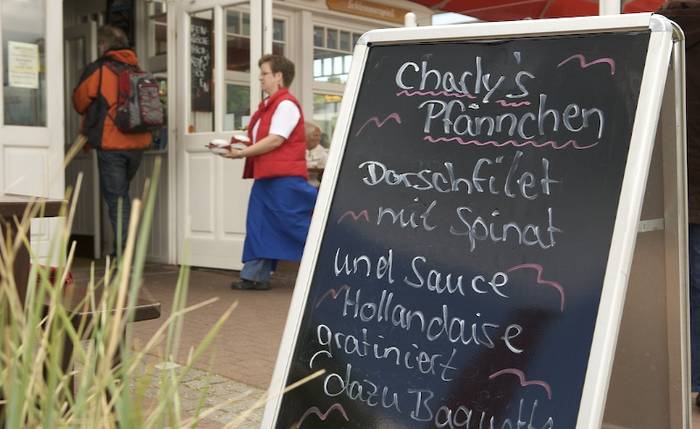 Charly's
Pfännchen
Dorschfilet
mit Spinat
und Sauce
Hollandaise
gratiniert
dazu Baguette